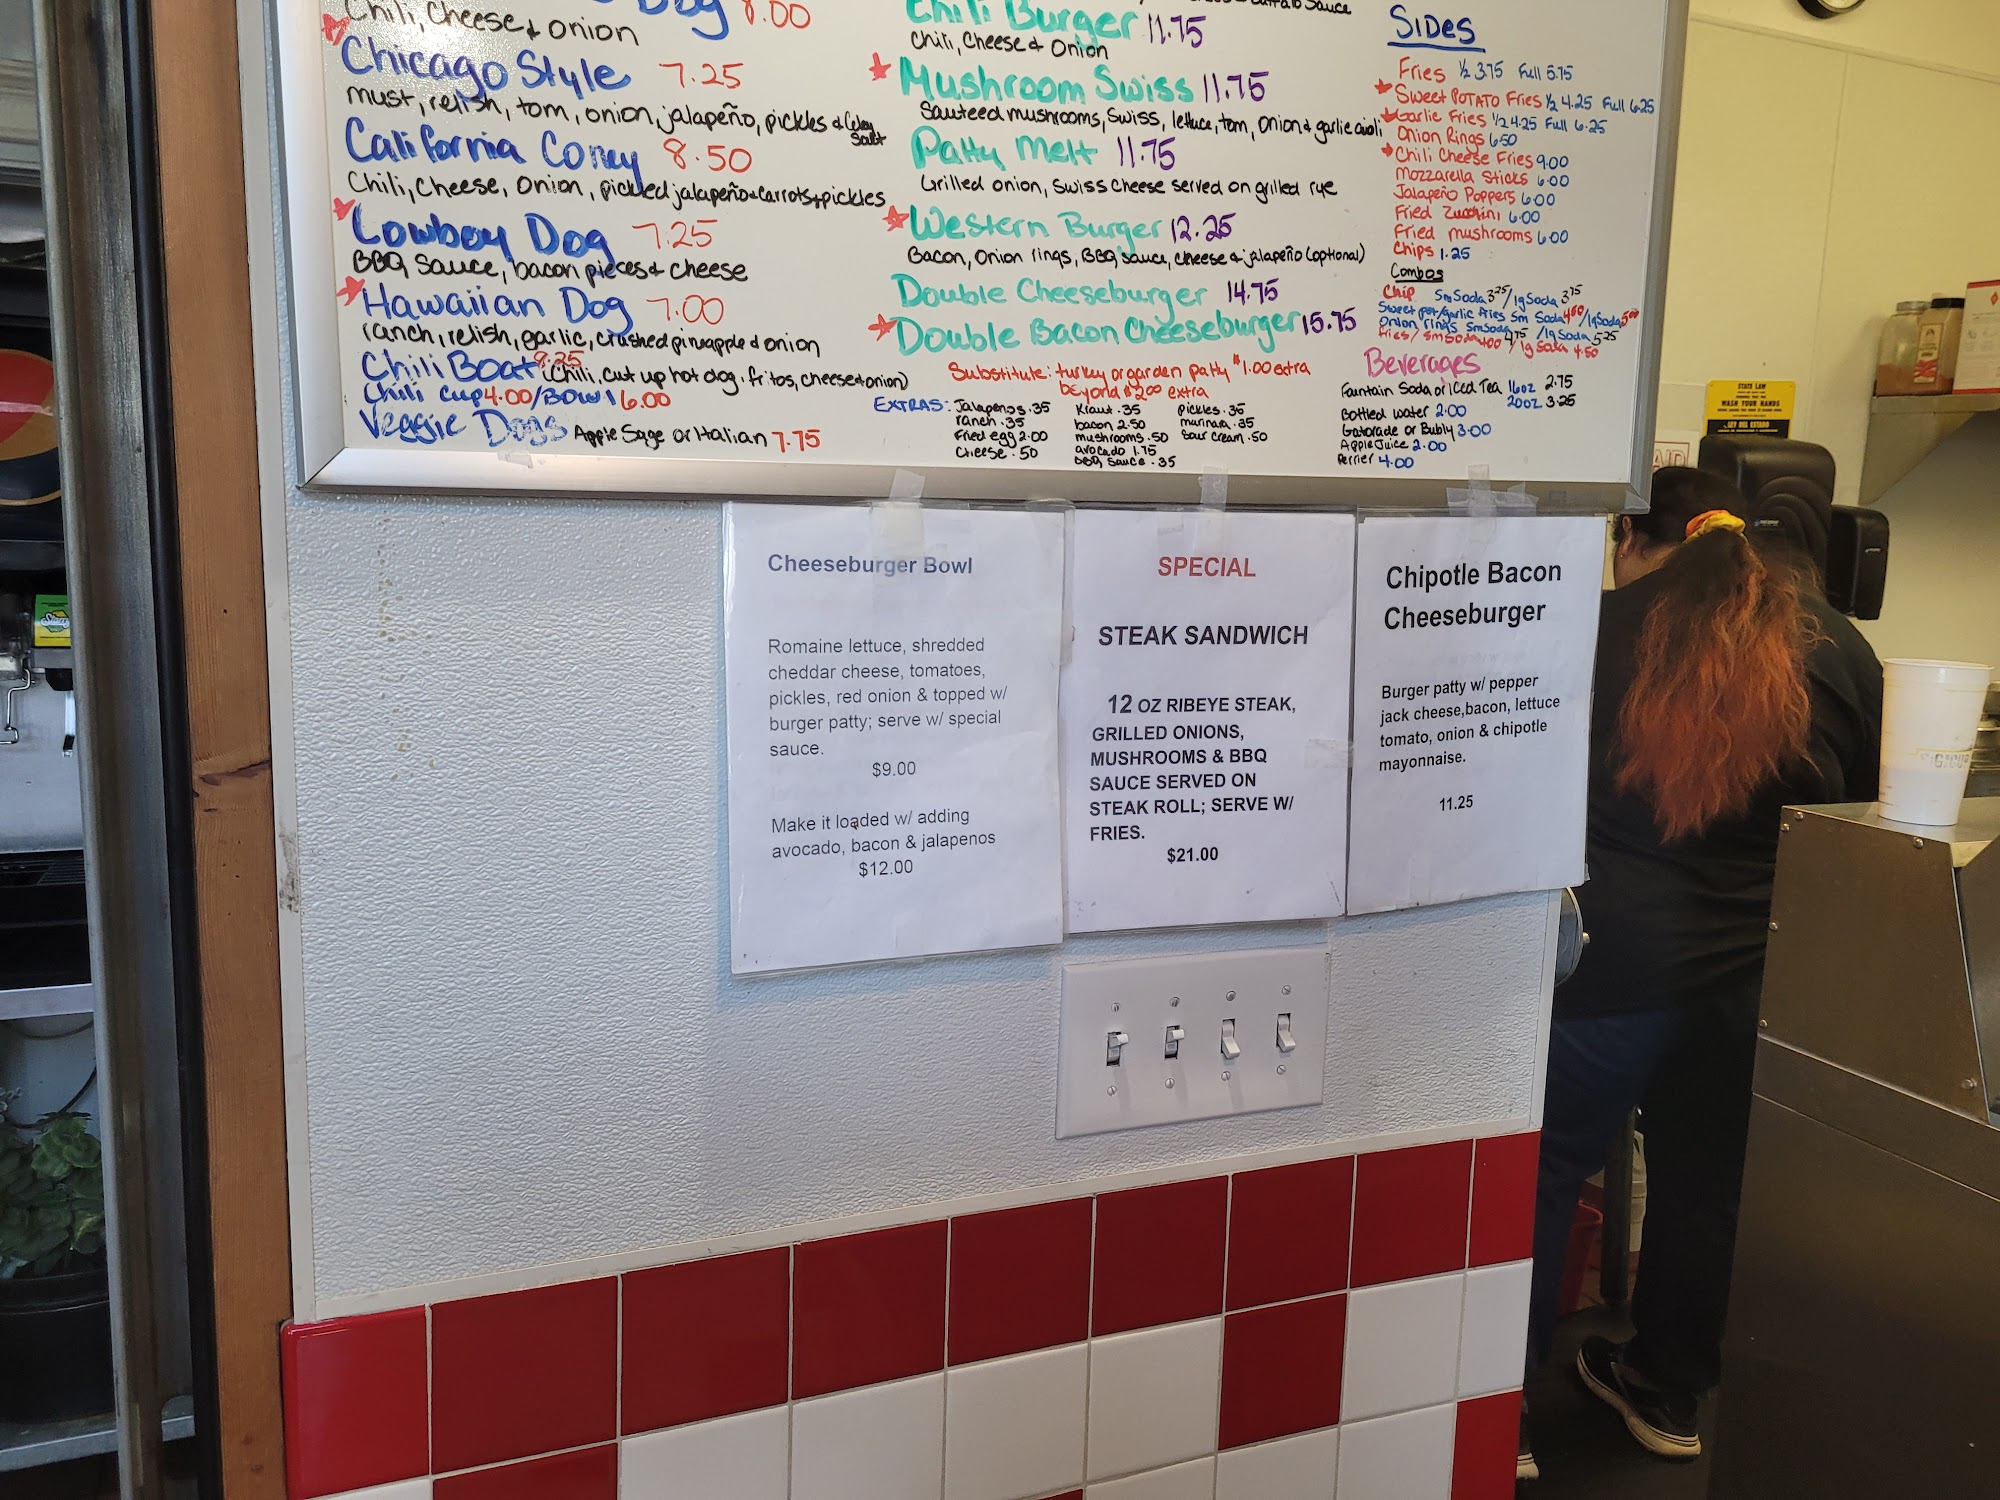 Dog 8.00
Chili, Cheese & Onion
Chicago Style 7.25
must, relish, tom, onion, jalapeño, pickles & Celery Salt
California Coney 8.50
Chili, Cheese, Onion, pickled jalapeño & carrots & pickles
Cowboy Dog 7.25
BBQ Sauce, bacon pieces & cheese
Hawaiian Dog 7.00
ranch, relish, garlic, crushed pineapple & onion
Chili Boat 8.25 (Chili, cut up hot dog, fritos, cheese & onion)
Chili Cup 4.00/Bowl 6.00
Veggie Dogs Apple Sage or Italian 7.75
Sauce
Chili Burger 11.75
Chili, Cheese & Onion
Mushroom Swiss 11.75
Sauteed mushrooms, Swiss, lettuce, tom, Onion & garlic aioli
Patty Melt 11.75
Grilled onion, Swiss cheese served on grilled rye
Western Burger 12.25
Bacon, Onion rings, BBQ sauce, cheese & jalapeño (optional)
Double Cheeseburger 14.75
Double Bacon Cheeseburger 15.75
Substitute: turkey or garden patty $1.00 extra
beyond $2.00 extra
EXTRAS: Jalapenos .35
ranch .35
Fried egg 2.00
Cheese .50
Kraut .35
bacon 2.50
mushrooms .50
avocado 1.75
BBQ Sauce .35
pickles .35
marinara .35
Sour Cream .50
SIDES
Fries ½ 3.75 Full 5.75
Sweet POTATO Fries ½ 4.25 Full 6.25
Garlic Fries ½ 4.25 Full 6.25
Onion Rings 6.50
Chili Cheese Fries 9.00
Mozzarella Sticks 6.00
Jalapeño Poppers 6.00
Fried Zucchini 6.00
Fried mushrooms 6.00
Chips 1.25
Combos
Chip Sm Soda 3.25/lg Soda 3.75
Sweet pot/garlic fries Sm Soda 4.50/lg Soda 5.00
Onion rings Sm Soda 4.75/lg Soda 5.25
fries/ Sm Soda 4.00/lg Soda 4.50
Beverages
Fountain Soda or Iced Tea 16oz 2.75
20oz 3.25
Bottled water 2.00
Gatorade or Bubly 3.00
Apple Juice 2.00
Perrier 4.00
Cheeseburger Bowl
Romaine lettuce, shredded
cheddar cheese, tomatoes,
pickles, red onion & topped w/
burger patty; serve w/ special
sauce.
$9.00
Make it loaded w/ adding
avocado, bacon & jalapenos
$12.00
SPECIAL
STEAK SANDWICH
12 OZ RIBEYE STEAK,
GRILLED ONIONS,
MUSHROOMS & BBQ
SAUCE SERVED ON
STEAK ROLL; SERVE W/
FRIES.
$21.00
Chipotle Bacon
Cheeseburger
Burger patty w/ pepper
jack cheese,bacon, lettuce
tomato, onion & chipotle
mayonnaise.
11.25
STATE LAW
WASH YOUR HANDS
LEY DEL ESTADO
AID